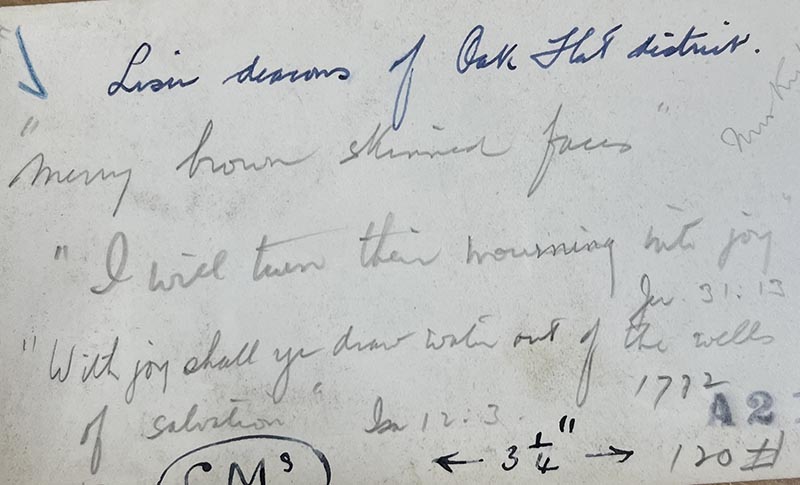 Lisu deacons of Oak Flat district.
"Merry brown skinned faces"
"I will turn their mourning into joy"
Jer. 31:13
"With joy shall ye draw water out of the wells
of salvation" Isa 12:3.
1772
A2
CMS
← 3 1/4" → 120#